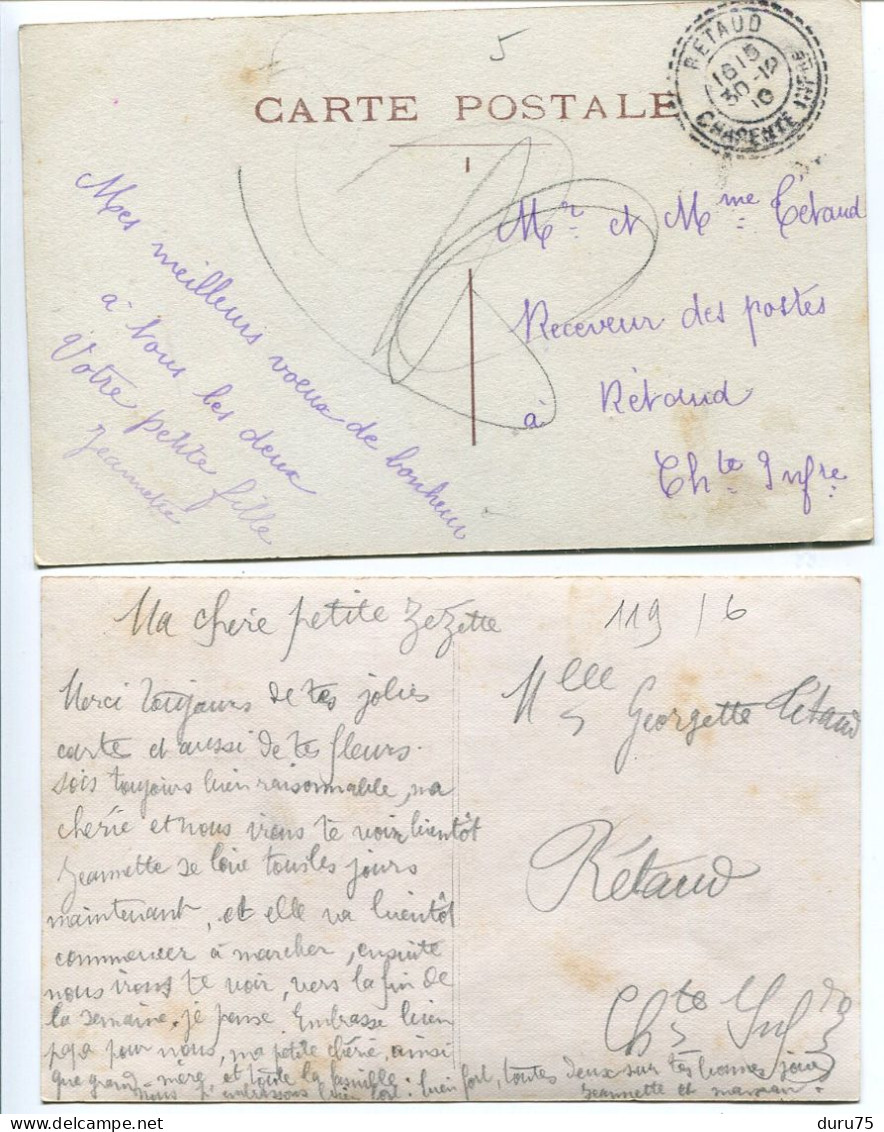 5
CARTE POSTALE
RETAUD
16 15
30 -12
10
CHARENTE INFRE
Mr et Mme Tétaud
Receveur des postes
à Rétaud
Chte Infre
Mes meilleurs voeux de bonheur
à tous les deux
Votre petite fille
Jeannette
Ma chère petite Zézette
119 / 6
Merci toujours de tes jolies
carte et aussi de tes fleurs.
Sois toujours bien raisonnable, ma
chérie et nous irons te voir bientôt
Jeannette se lève tous les jours
maintenant, et elle va bientôt
commencer à marcher, ensuite
nous irons te voir, vers la fin de
la semaine, je pense. Embrasse bien
papa pour nous, ma petite chérie, ainsi
que grand-mère, et toute la famille.
Nous t'embrassons bien fort, bien fort, toutes deux sur tes bonnes joues
Jeannette et maman.
Mlle Georgette Tétaud
Rétaud
Chte Infre
duru75